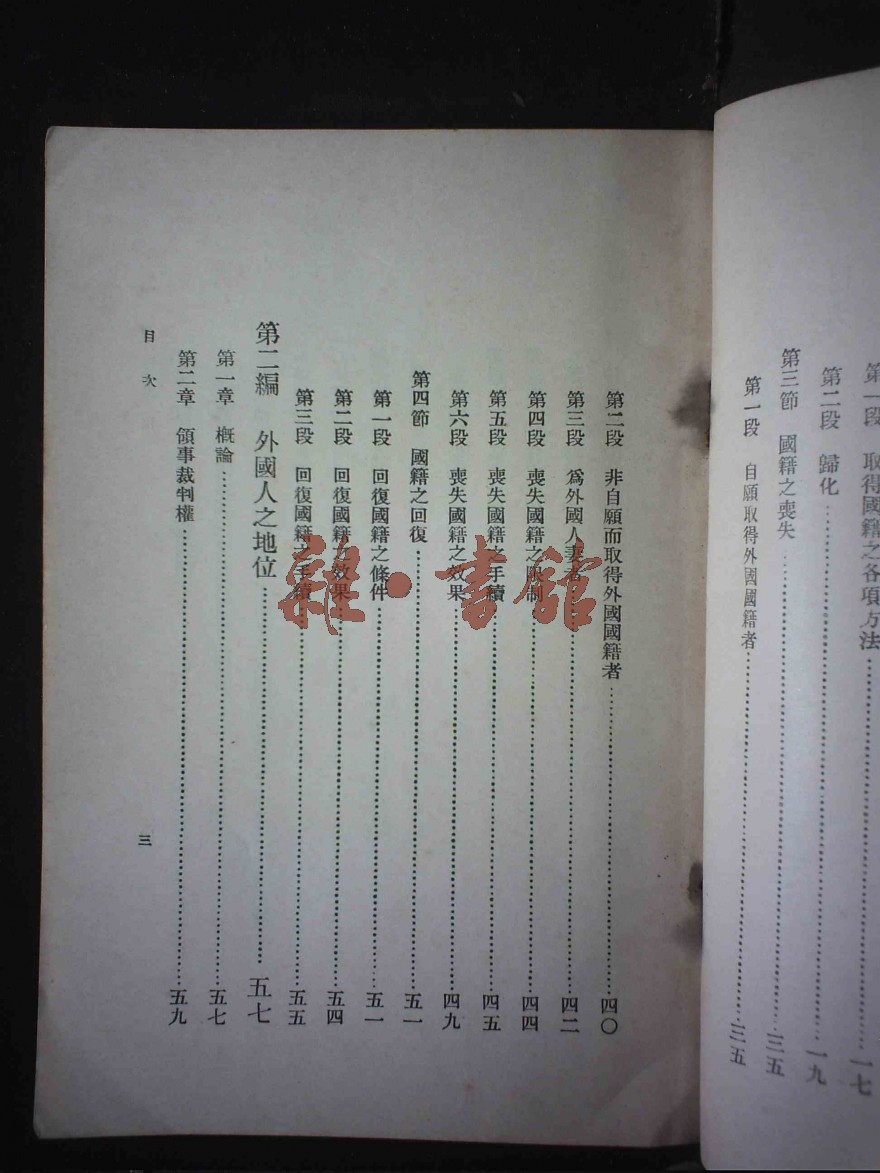 第一段　取得國籍之各項方法……一七
第二段　歸化……一九
第三節　國籍之喪失……三五
第一段　自願取得外國國籍者……三五
第二段　非自願而取得外國國籍者……四〇
第三段　爲外國人妻者……四二
第四段　喪失國籍之限制……四四
第五段　喪失國籍之手續……四五
第六段　喪失國籍之效果……四九
第四節　國籍之回復……五一
第一段　回復國籍之條件……五一
第二段　回復國籍之效果……五四
第三段　回復國籍之手續……五五
第二編　外國人之地位……五七
第一章　槪論……五七
第二章　領事裁判權……五九
目次
三
雜·書館